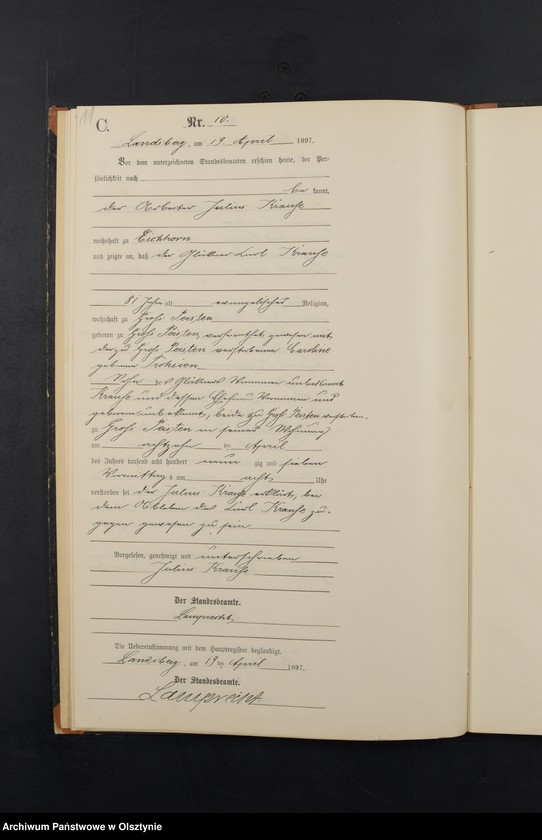 11
C.
Nr. 10.
Landsberg, am 19 April 1897.
Vor dem unterzeichneten Standesbeamten erschien heute, der Per-
sönlichkeit nach
be kannt,
der Arbeiter Julius Krause
wohnhaft zu Eichhorn
und zeigte an, daß der Glöckner Carl Krause
81 Jahre alt evangelischer Religion,
wohnhaft zu Groß Peisten
geboren zu Groß Peisten, verheirathet gewesen mit
der zu Groß Peisten verstorbenen Caroline
geborene
Sohn des Glöckners Vornamen unbekannt
Krause und dessen Ehefrau Vornamen und
geborene unbekannt, beide zu Groß Peisten verstorben.
zu Groß Peisten in seiner Wohnung
am achtzehn ten April
des Jahres tausend acht hundert neun zig und sieben
Vormittags um acht Uhr
verstorben sei der Julius Krause erklärt, bei
dem Ableben des Carl Krause zu-
gegen gewesen zu sein
Vorgelesen, genehmigt und unterschrieben
Julius Krause
Der Standesbeamte.
Lamprecht
Die Uebereinstimmung mit dem Hauptregister beglaubigt.
Landsberg, am 19 ten April 1897.
Der Standesbeamte.
Lamprecht
Archiwum Państwowe w Olsztynie